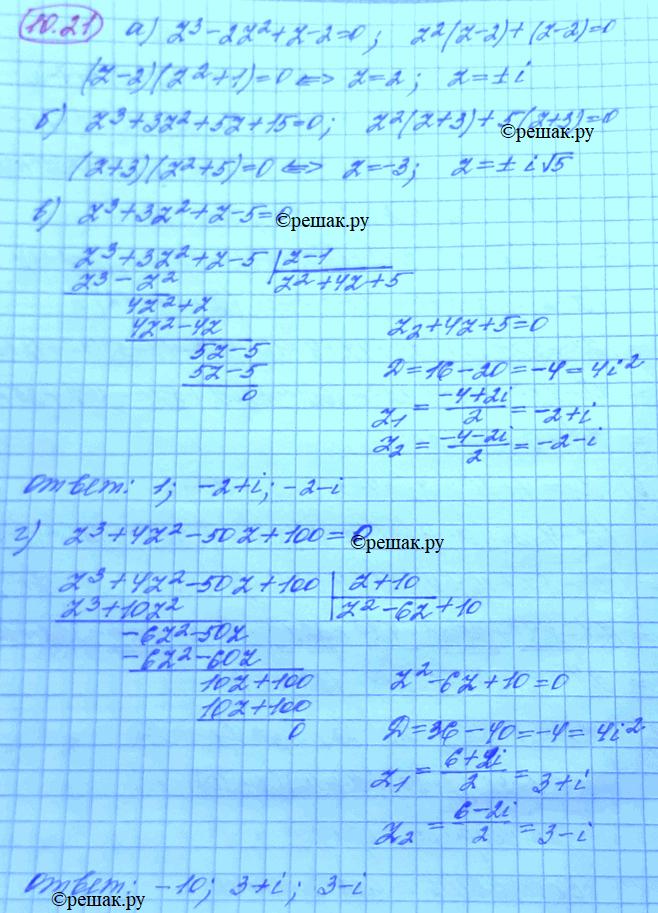 10.21 а) z³-2z²+z-2=0; z²(z-2)+(z-2)=0
(z-2)(z²+1)=0 <=> z=2; z=±i
б) z³+3z²+5z+15=0; z²(z+3)+5(z+3)=0
©решак.ру
(z+3)(z²+5)=0 <=> z=-3; z=±i√5
в) z³+3z²+z-5=0
©решак.ру
z³+3z²+z-5 | z-1
z³-z² | z²+4z+5
4z²+z
4z²-4z
z₂+4z+5=0
5z-5
5z-5
Д=16-20=-4=4i²
0
z₁=(-4+2i)/2=-2+i
z₂=(-4-2i)/2=-2-i
ответ: 1; -2+i; -2-i
г) z³+4z²-50z+100=0
©решак.ру
z³+4z²-50z+100 | z+10
z³+10z² | z²-6z+10
-6z²-50z
-6z²-60z
10z+100
z²-6z+10=0
10z+100
0
Д=36-40=-4=4i²
z₁=(6+2i)/2=3+i
z₂=(6-2i)/2=3-i
ответ: -10; 3+i; 3-i
©решак.ру